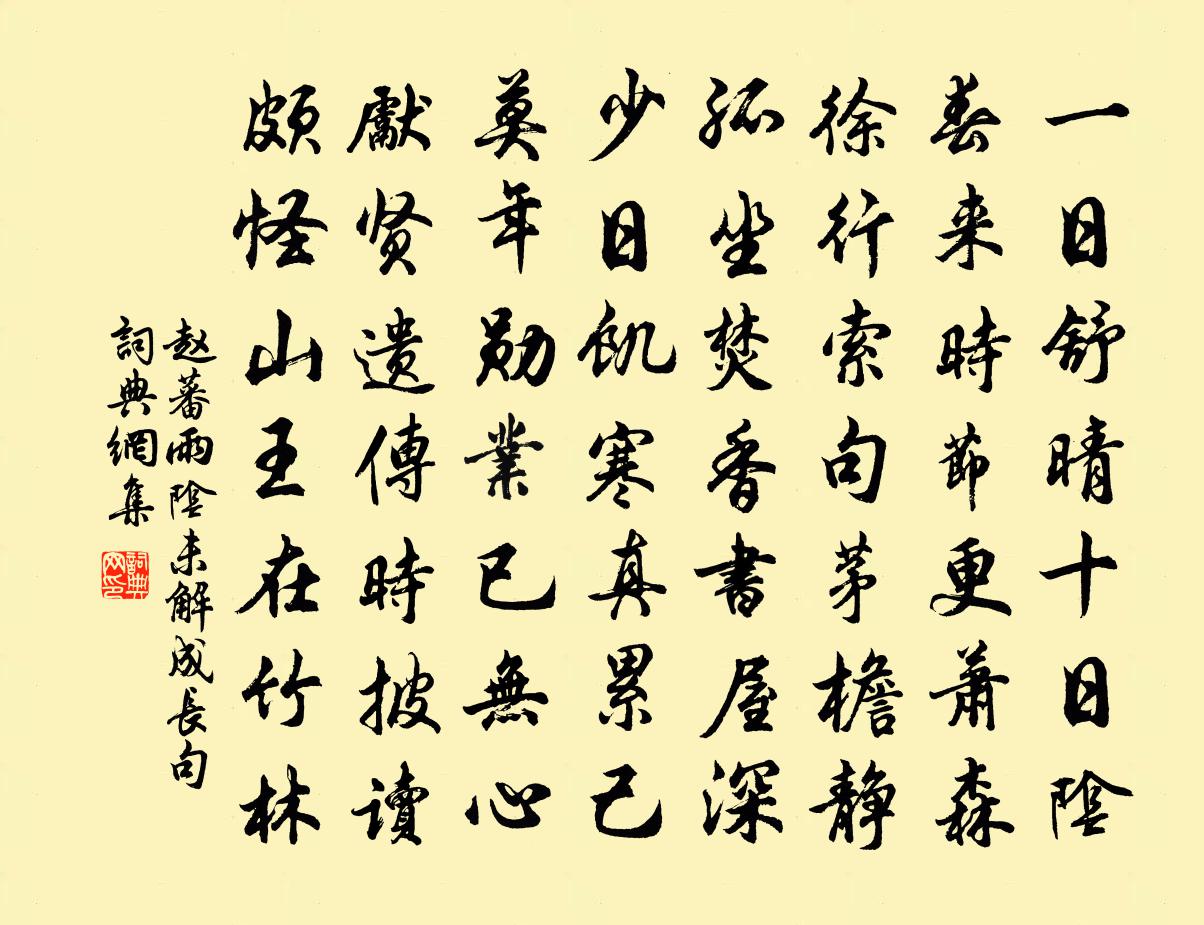 一日舒晴十日陰
春来時節更萧森
徐行索句茅檐静
孤坐焚香書屋深
少日飢寒真累己
莫年勋業已無心
獻贤遗傳時披读
頗怪山王在竹林
赵蕃雨陰未解成長句
詞典網集
詞典网印